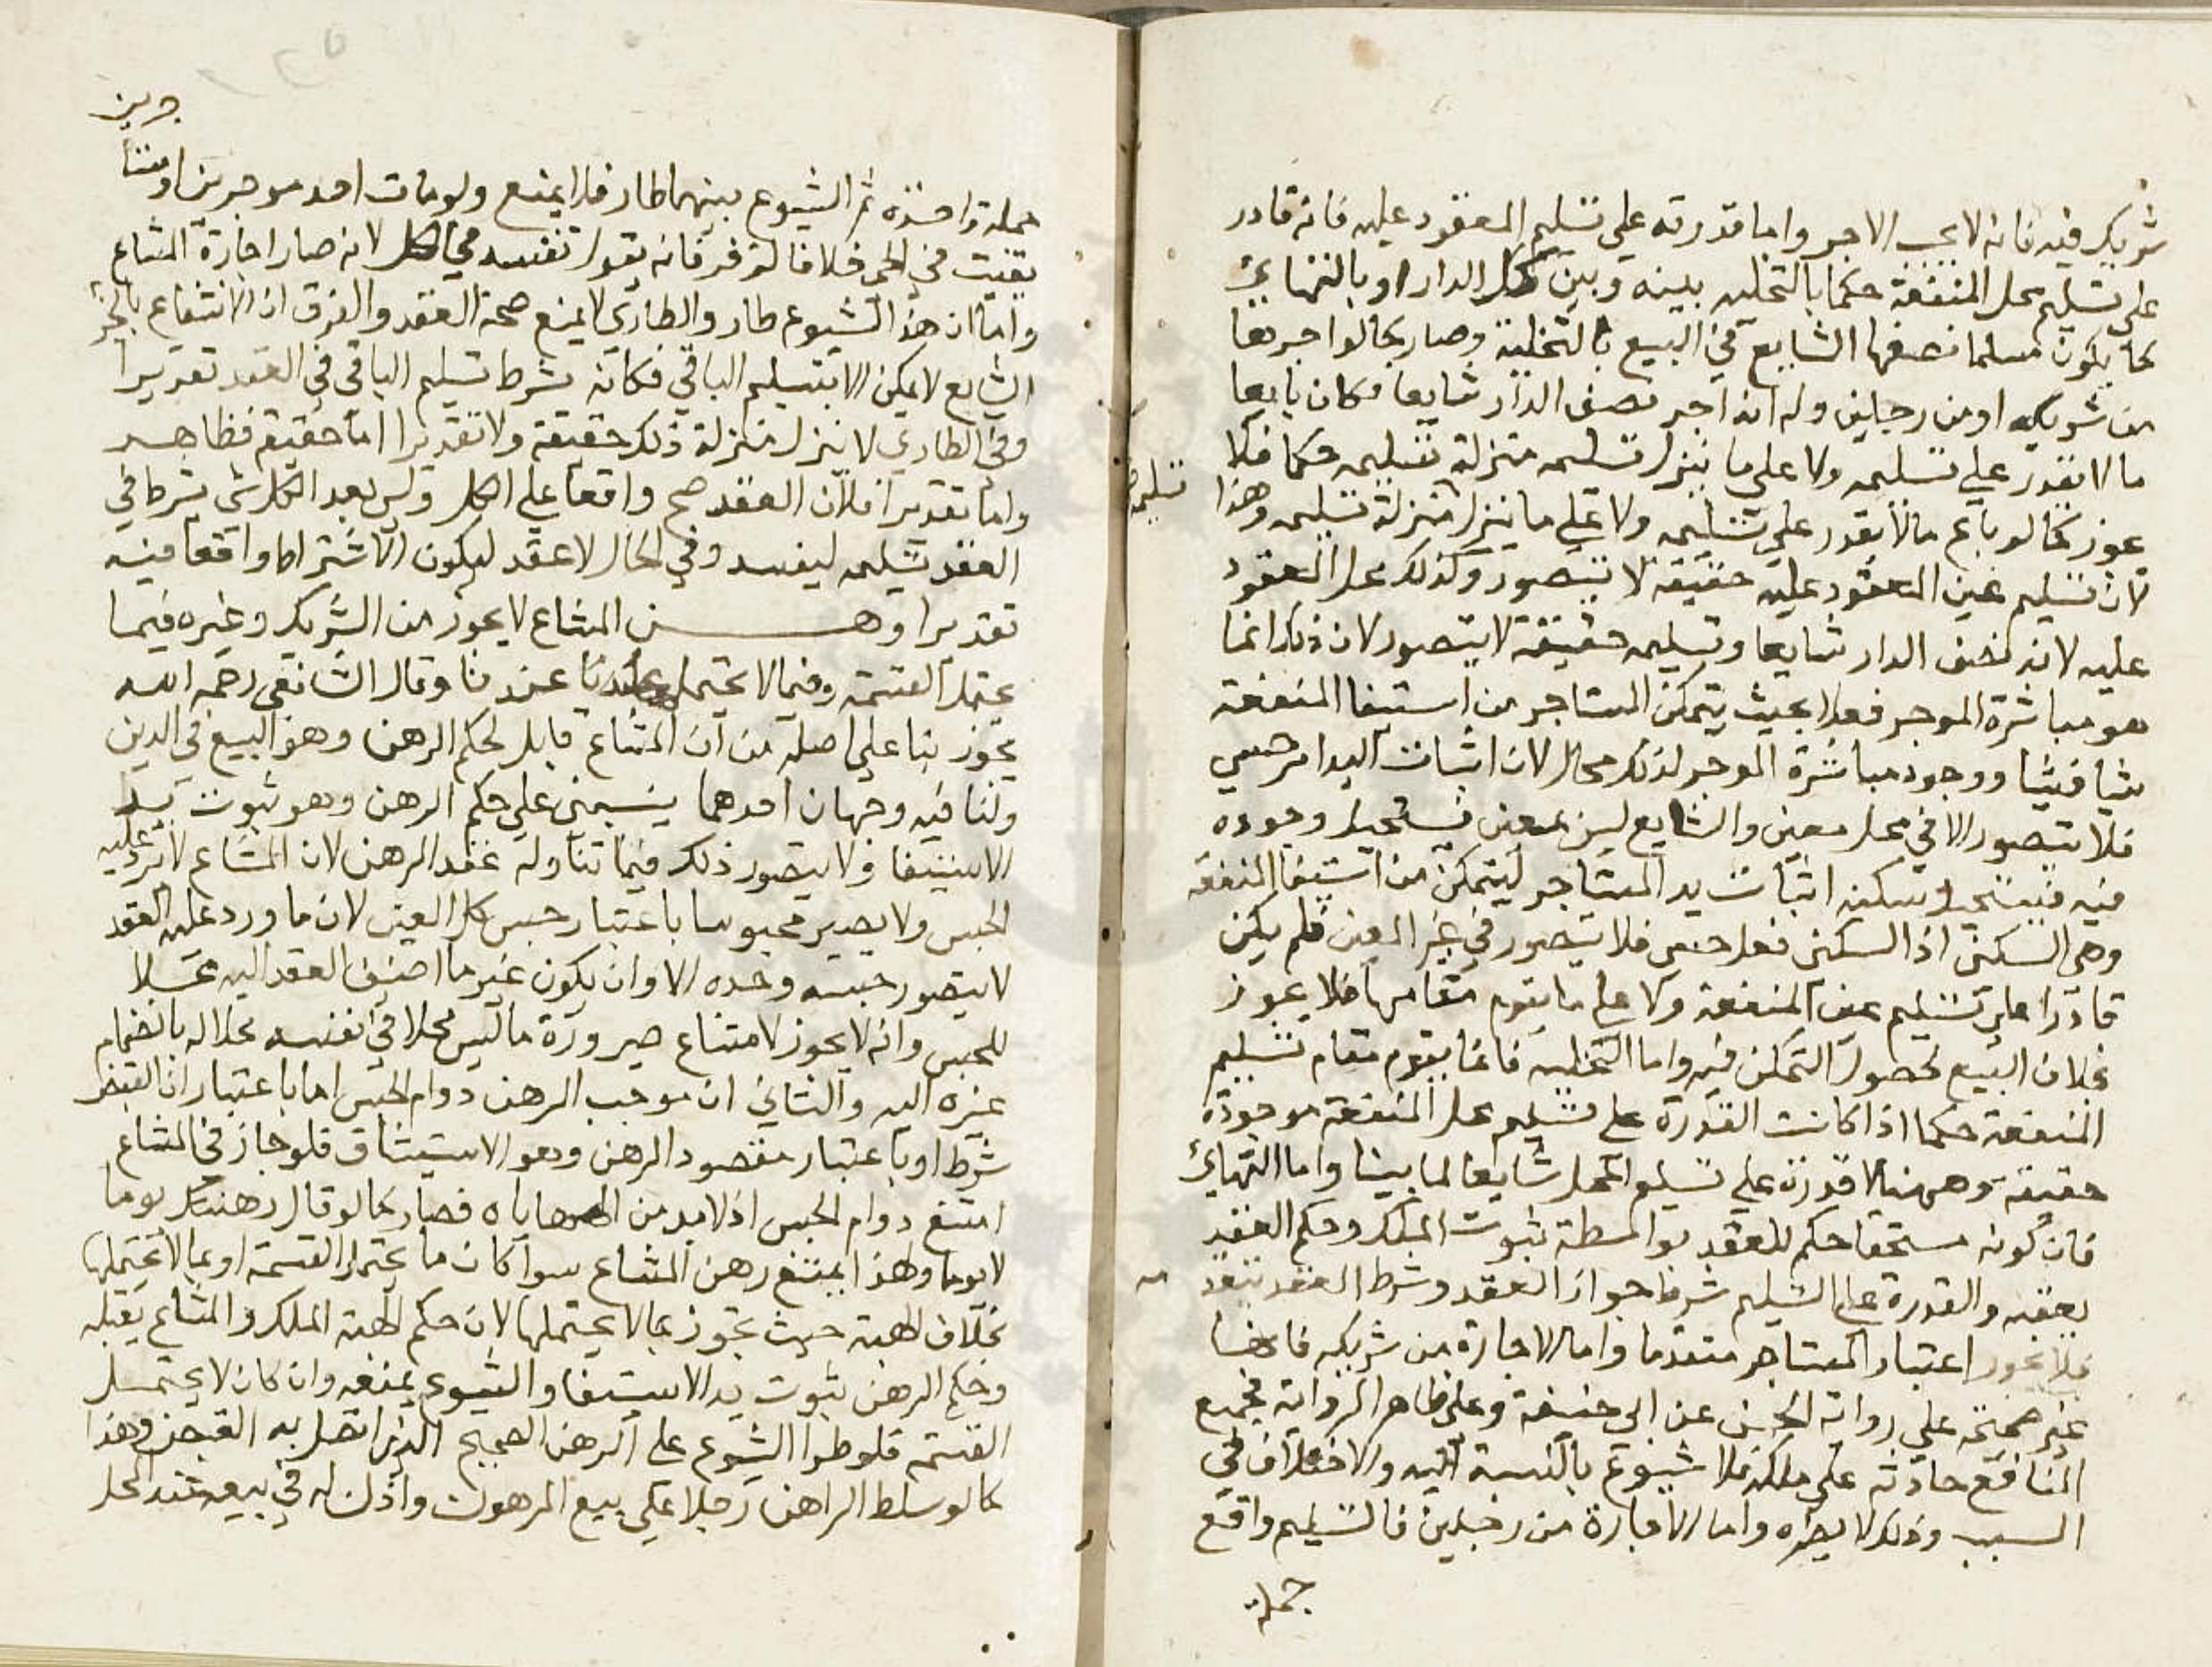 شريكه فيه فانه لا يجب الاجر واما قدرته علي تسليم المعقود عليه فانه قادر
علي تسليم محل المنفعة حكما بالتخليه بينه وبين كل الدار او بالتهايئ
كما يكون مسلما نصفها الشايع في البيع بالتخلية وصار كما لو اجرها
من شريكه او من رجلين وله انه اجر نصف الدار شايعا فكان بايعا
ما لا يقدر علي تسليمه ولا علي ما ينزل تسليمه منزلة تسليمه حكما فلا
يجوز كما لو باع مالا يقدر علي تسليمه ولا علي ما ينزل منزلة تسليمه وهذا
تسليمه
لان تسليم عين المعقود عليه حقيقة لا يتصور وكذلك محل المعقود
عليه لانه نصف الدار شايعا وتسليمه حقيقة لا يتصور لان ذلك انما
هو مباشرة الموجر فعلا بحيث يتمكن المستاجر من استيفا المنفعة
شيا فشيا ووجود مباشرة الموجر لذلك محال لان اثبات اليد امر حسي
فلا يتصور الا في محل معين والشايع ليس بمعين فيستحيل وجوده
فيه فيستحيل تمكينه اثبات يد المستاجر ليتمكن من استيفا المنفعة
وهي السكني اذ السكني فعل حسي فلا يتصور في غير المعين فلم يكن
قادرا علي تسليم عين المنفعة ولا علي ما يقوم مقامها فلا يجوز
بخلاف البيع لحصول التمكن فيه واما التخليه فانما يقوم مقام تسليم
المنفعة حكما اذا كانت القدرة علي تسليم محل المنفعة موجودة
حقيقة وههنا لا قدرة علي تسليم المحل شايعا لما بينا واما التهايئ
فان كونه مستحقا حكم للعقد بواسطة ثبوت الملك وحكم العقد
يعقبه والقدرة علي التسليم شرط جواز العقد وشرط العقد
فلا يجوز اعتبار المستاجر متقدما واما الاجارة من شريكه فانها
غير صحيحة علي رواية الحسن عن ابي حنيفة وعلي ظاهر الرواية فجميع
المنافع حادثة علي ملكه فلا شيوع بالنسبة اليه والاختلاف في
السبب وذلك لا يضره واما الاجارة من رجلين فالتسليم واقع
جملة
جملة واحدة ثم الشيوع بينهما طار فلا يمنع ولو مات احد موجرين او متنا
جرين
بقيت في الحي خلافا لزفر فانه يقول تفسد في الكل لانه صار اجارة المشاع
واما ان هذا الشيوع طار والطاري لا يمنع صحة العقد والفرق ان الانتفاع بالجز
الشايع لا يمكن الا بتسليم الباقي فكانه شرط تسليم الباقي في العقد تقديرا
وفي الطاري لا ينزل منزلة ذلك حقيقة ولا تقديرا اما حقيقة فظاهر
واما تقديرا فلان العقد صح واقعا علي الكل وليس بعد الكل شي يشرط في
العقد تسليمه ليفسد وفي الحال لا عقد ليكون الاشتراط واقعا فيه
تقديرا وهن المشاع لا يجوز من الشريك وغيره فيما
يحتمل القسمة وفيما لا يحتمل عندنا وقال الشافعي رحمه الله
يجوز بنا علي اصله من ان المشاع قابل لحكم الرهن وهو البيع في الدين
ولنا فيه وجهان احدهما يبتني علي حكم الرهن وهو ثبوت يد
الاستيفا ولا يتصور ذلك فيما تناوله عقد الرهن لان المشاع لا يرد عليه
الحبس ولا يصير محبوسا باعتبار حبس كل العين لان ما ورد عليه العقد
لا يتصور حبسه وحده الا وان يكون غير ما اضيف العقد اليه محلا
للحبس وانه لا يجوز لامتناع صيرورة ما ليس محلا في نفسه محلا له بانضمام
غيره اليه والثاني ان موجب الرهن دوام الحبس اما باعتبار ان القبض
شرط او باعتبار مقصود الرهن وهو الاستيثاق فلو جاز في المشاع
امتنع دوام الحبس اذ لا بد من المهاياه فصار كما لو قال رهنتك يوما
لا يوما ولهذا يمتنع رهن المشاع سوا كان ما يحتمل القسمة او مما لا يحتملها
بخلاف الهبة حيث تجوز مما لا يحتملها لان حكم الهبة الملك والمشاع يقبله
وحكم الرهن ثبوت يد الاستيفا والشيوع يمنعه وان كان لا يحتمل
القسمة فلو طرا الشيوع علي الرهن الصحيح الذي اتصل به القبض وهذا
كما لو سلط الراهن رجلا علي بيع المرهون واذن له في بيعه عند المحل